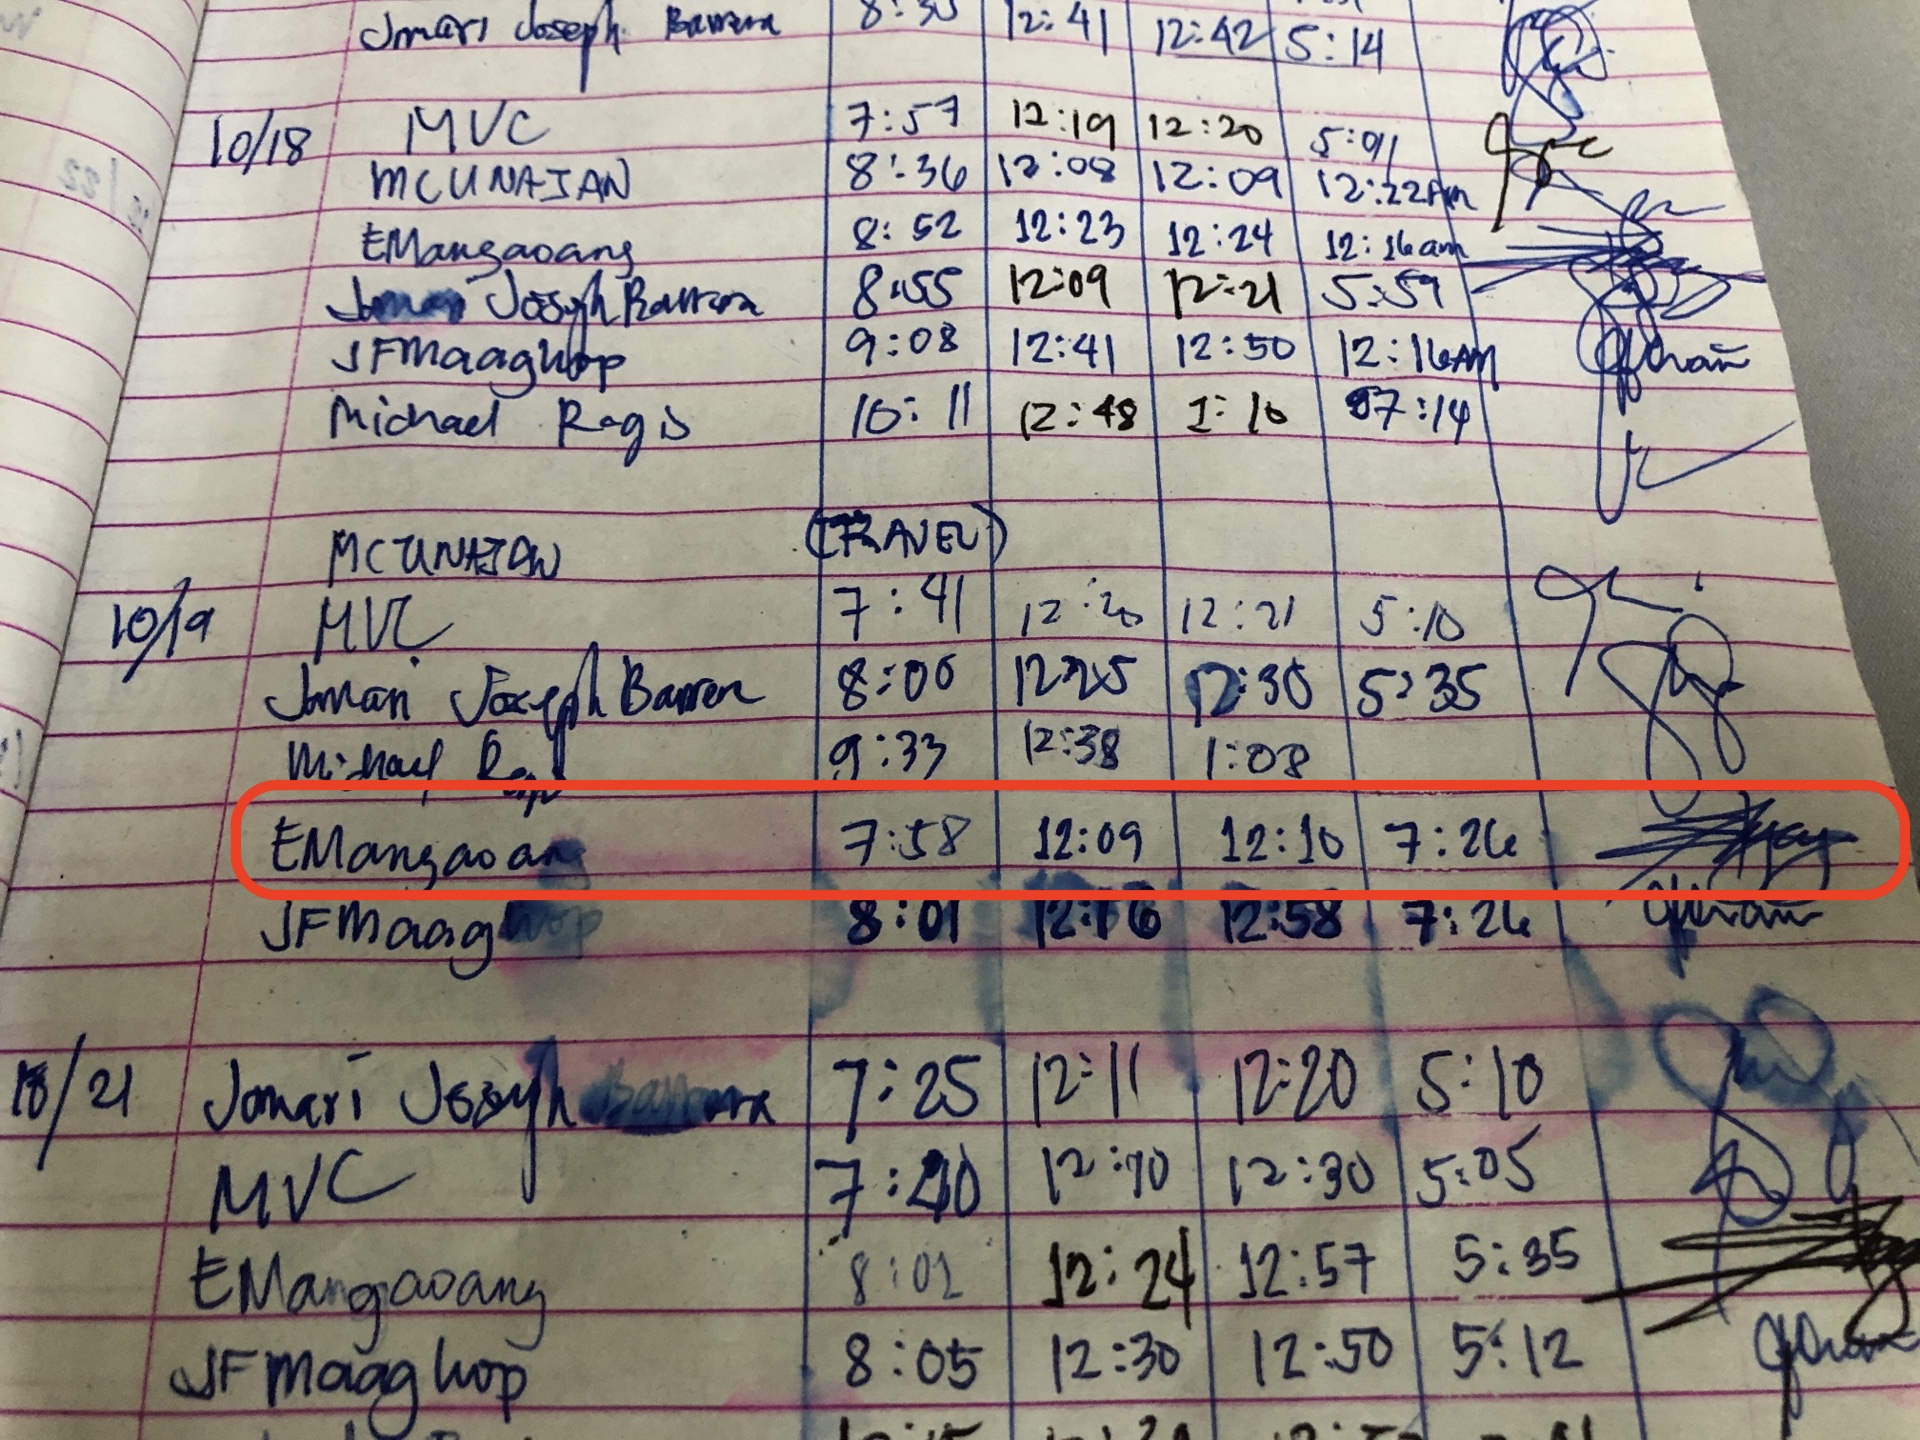 Jmari Joseph Barrera 8:30 12:41 12:42 5:14
10/18 MVC 7:57 12:19 12:20 5:01
MCUNAJAN 8:36 12:08 12:09 12:22AM
EMangaoang 8:52 12:23 12:24 12:16am
Joseph Barrera 8:55 12:09 12:21 5:59
JFMaaghop 9:08 12:41 12:50 12:16AM
Michael Ragis 10:11 12:48 1:10 07:14
MCUNAJAN (TRAVEL)
10/19 MVC 7:41 12:20 12:21 5:10
Jomari Joseph Barrera 8:00 12:25 12:30 5:35
Michael 9:33 12:38 1:08
EMangaoang 7:58 12:09 12:10 7:26
JFMaaghop 8:01 12:16 12:58 7:26
10/21 Jomari Joseph Barrera 7:25 12:11 12:20 5:10
MVC 7:40 12:10 12:30 5:05
EMangaoang 8:02 12:24 12:57 5:35
JFMaaghop 8:05 12:30 12:50 5:12